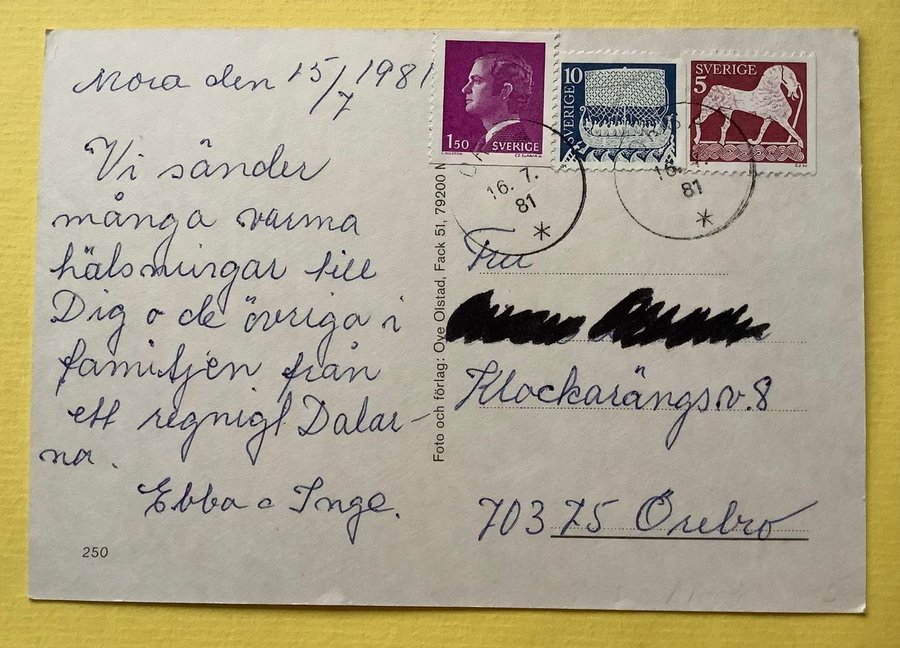 Mora den 15/7 1981
Vi sänder
många varma
hälsningar till
Dig o de övriga i
familjen från
ett regnigt Dalar-
na.
Ebba o Inge.
250
Foto och förlag: Ove Olstad, Fack 51, 79200
1.50 SVERIGE
10 SVERIGE
SVERIGE
5
16. 7.
81
*
16. 7.
81
*
Klockarängsv. 8
703 75 Örebro